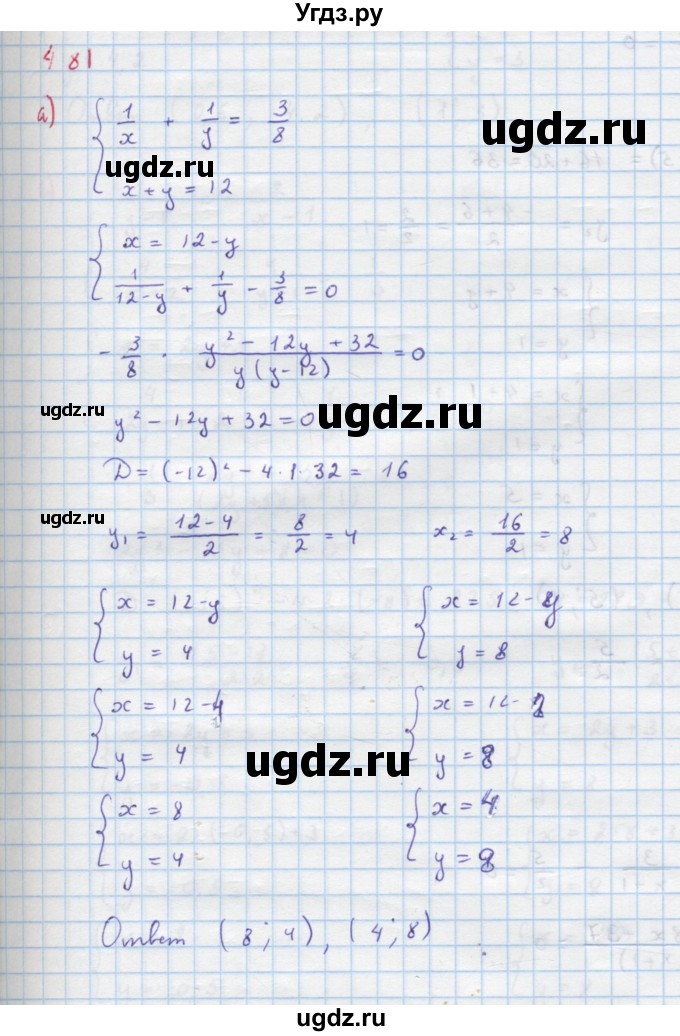 Угдз.ру
481
а) { 1/x + 1/y = 3/8
ugdz.ru
ugdz.ru
x + y = 12
{ x = 12 - y
1/(12-y) + 1/y - 3/8 = 0
- 3/8 · (y² - 12y + 32)/(y(y-12)) = 0
ugdz.ru
ugdz.ru
y² - 12y + 32 = 0
D = (-12)² - 4·1·32 = 16
ugdz.ru
y₁ = (12-4)/2 = 8/2 = 4 x₂ = 16/2 = 8
{ x = 12 - y { x = 12 - y
y = 4 y = 8
{ x = 12 - 4 { x = 12 - 8
y = 4 y = 8
ugdz.ru
{ x = 8 { x = 4
y = 4 y = 8
Ответ (8; 4), (4; 8)
ugdz.ru